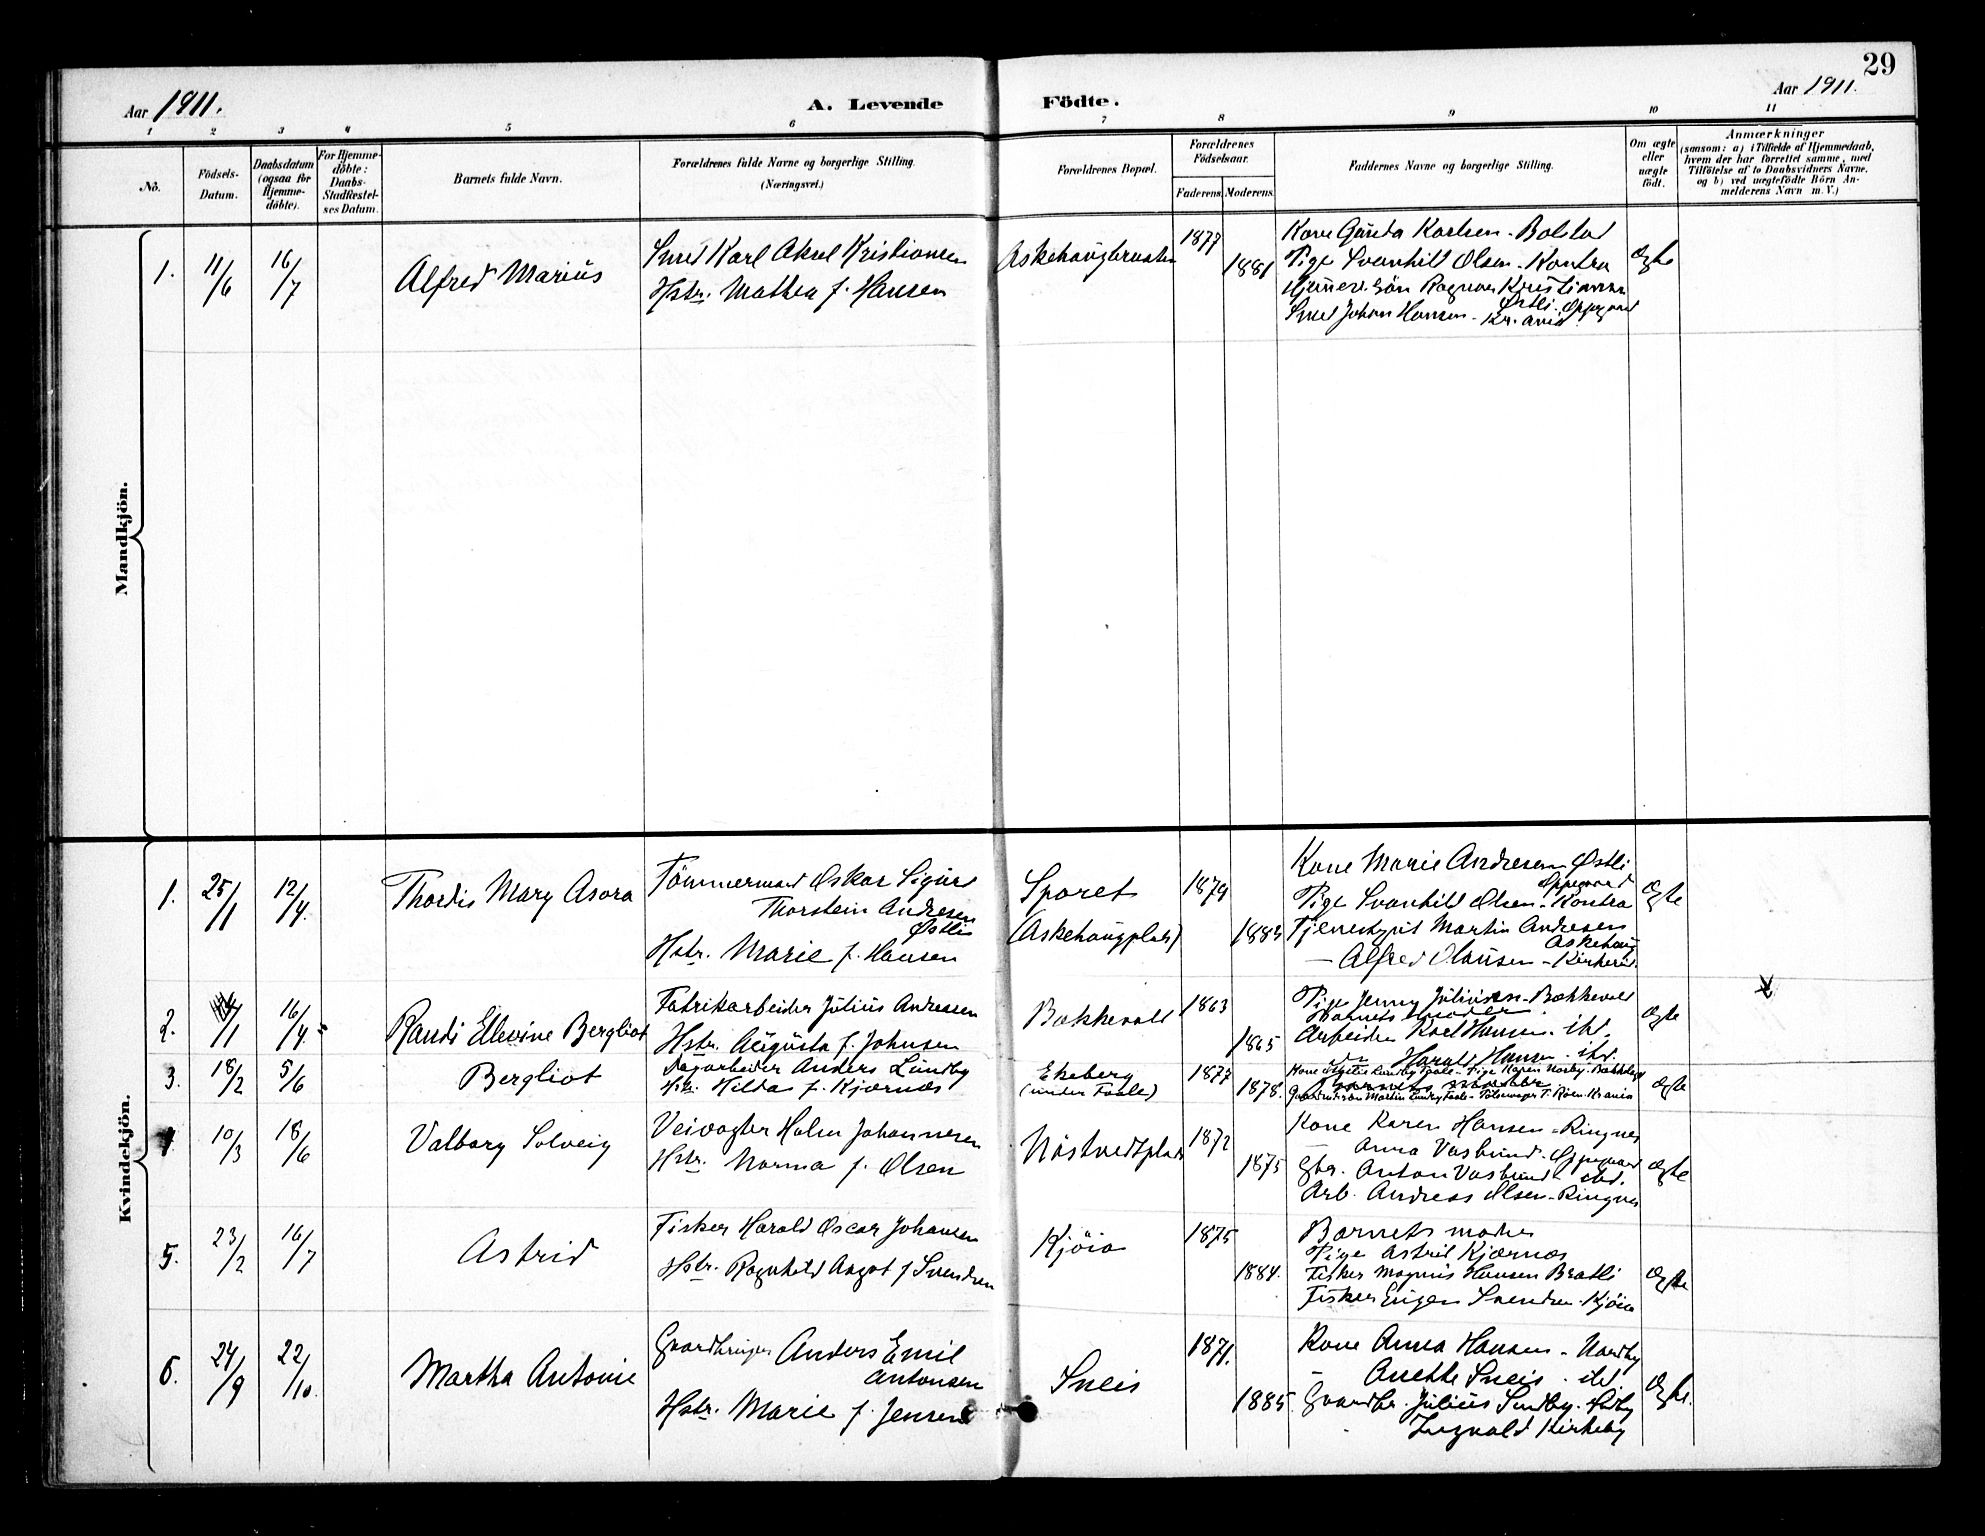 29
Aar 1911.
A. Levende Födte.
Aar 1911.
1 2 3 4 5 6 7 8 9 10 11
No.
Födsels-Datum.
Daabsdatum (ogsaa for Hjemme-döbte).
For Hjemme-döbte: Daabs-Stadfæstel-ses Datum.
Barnets fulde Navn.
Forældrenes fulde Navne og borgerlige Stilling.
(Næringsvei.)
Forældrenes Bopæl.
Forældrenes Födselsaar.
Faderens. Moderens.
Faddernes Navne og borgerlige Stilling.
Om ægte eller uægte födt.
Anmærkninger
(saasom: a) i Tilfælde af Hjemmedaab,
hvem der har forrettet samme, med
Tilföielse af to Daabsvidners Navne,
og b) ved uægtefödte Börn An-
melderens Navn m. V.)
Mandkjön.
1. 11/6 16/7 Alfred Marius
Smed Karl Aksel Kristiansen
Hstr. Mathea f. Hansen
1877
1881
Pige Svanhild Olsen - Kontra
Smed Johan Hansen - Kr.ania
Ægte
Kvindekjön.
1. 25/1 12/4. Thordis Mary Asora
Tömmermand Oskar Sigurd
Thorstein Andresen
Østli
Hstr. Marie f. Hansen
Sporet
(Askehaugplads)
1879
Kone Marie Andresen Østli
Oppegaard
Pige Svanhild Olsen - Kontra
Martin Andresen
Askehaug
Alfred Olausen
Ægte
2. 16/4 Randi Ellevine Bergliot
Fabrikarbeider Julius Andresen
Hstr. Augusta f. Johnsen
Bakkevold
1863
1865
Pige Jenny Juliussen - Bakkevold
Barnets moder.
Arbeider Karl Hansen - ibd.
Harald Hansen - ibd.
Ægte
3. 18/2 5/6 Bergliot
Dagarbeider Anders Lundby
Hstr. Hilda f. Kjærnes
Ekeberg
(under Faale)
1877
1878.
Ægte
4 10/3 18/6 Valborg Solveig
Veivogter Holm Johannesen
Hstr. Norma f. Olsen
Nöstvedtplads
1872
1875
Kone Karen Hansen - Ringnes
Anna Vasbund - Oppegaard
Gbr. Anton Vasbund ibd.
Arb. Andreas Olsen - Ringnes
Ægte
5. 23/2 16/7 Astrid
Fisker Harald Oscar Johansen
Hstr. Ragnhild Aagot f Svendsen
Kjöia
1875
1884.
Barnets moder
Pige Astrid Kjærnes
Fisker Magnus Hansen Bratli
Fisker Eugen Svendsen - Kjöia
Ægte
6. 24/9 22/10. Martha Antonie
Gaardbruger Anders Emil
Antonsen
Hstr. Marie f. Jensen
Sneis
1871.
1885
Kone Anna Hansen - Nordby
- Anette Sneis - ibd
Gaardbr. Julius Sundby
Ingvald Kirkeby
Ægte.